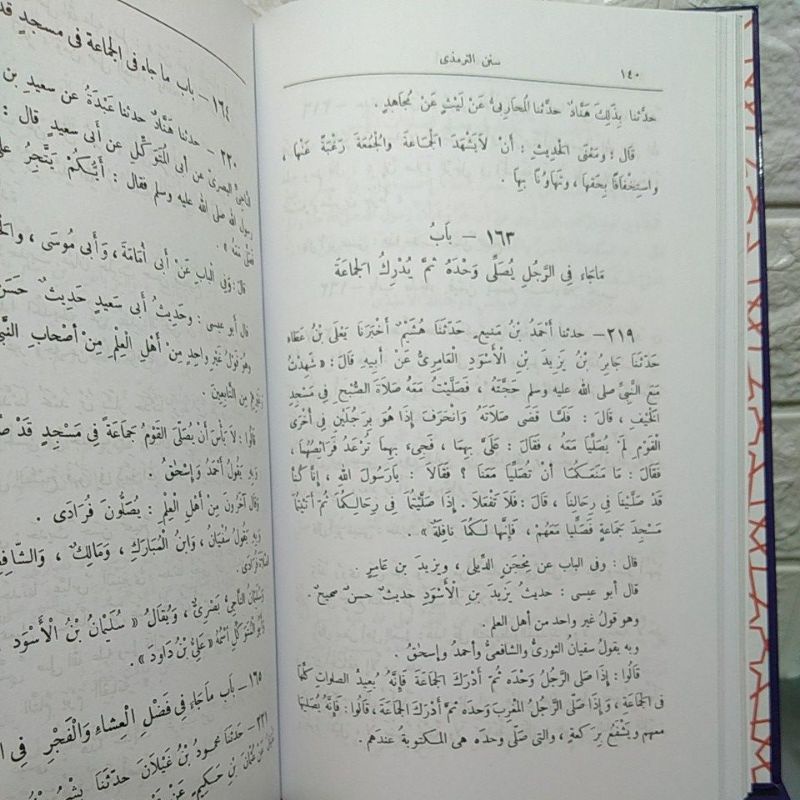 ١٤٠
سنن الترمذى
حدثنا بِذَلِكَ هَنَّادٌ حدَّثنا المُحَارِبىُّ عَنْ لَيْثٍ عَنْ مُجَاهِدٍ .
قال : ومَعْنَى الحديثِ : أَنْ لاَيَشْهَدَ الْجَمَاعَةَ وَالْجُمُعَةَ رَغْبَةً عَنْهَا ،
واستِخْفَافًا بِحَقِّهَا ، وتَهَاوُنًا بِهَا .
١٦٣ — بَابُ
مَاجَاءَ فِي الرَّجُلِ يُصَلِّى وَحْدَهُ ثُمَّ يُدْرِكُ الْجَمَاعَةَ
٢١٩— حدثنا أَحْمَدُ بْنُ مَنِيعٍ حَدَّثَنَا هُشَيْمٌ أَخْبَرَنَا يَعْلَى بْنُ عَطَاء
حَدَّثَنَا جَابِرُ بْنُ يَزِيدَ بْنِ الْأَسْوَدِ الْعَامِرِىُّ عَنْ أَبِيهِ قَالَ : « شَهِدْتُ
مَعَ النَّبِىِّ صلى الله عليه وسلم حَجَّتَهُ ، فَصَلَّيْتُ مَعَهُ صَلاَةَ الصُّبْحِ فِي مَسْجِدِ
الْخَيْفِ ، قَالَ : فَلَمَّا قَضَى صَلاَتَهُ وَانْحَرَفَ إِذَا هُوَ بِرَجُلَيْنِ فِي أُخْرَى
الْقَوْمِ لَمْ يُصَلِّيَا مَعَهُ ، فَقَالَ : عَلَىَّ بِهِمَا ، فَجِىءَ بِهِمَا تُرْعَدُ فَرَائِصُهُمَا ،
فَقَالَ : مَا مَنَعَكُمَا أَنْ تُصَلِّيَا مَعَنَا ؟ فَقَالاَ : يَارَسُولَ اللهِ ، إِنَّا كُنَّا
قَدْ صَلَّيْنَا فِي رِحَالِنَا ، قَالَ : فَلاَ تَفْعَلاَ . إِذَا صَلَّيْتُمَا فِي رِحَالِكُمَا ثُمَّ أَتَيْتُمَا
مَسْجِدَ جَمَاعَةٍ فَصَلِّيَا مَعَهُمْ ، فَإِنَّهَا لَكُمَا نَافِلَةٌ » .
قال : وفى الباب عن مِحْجَنٍ الدِّيلِى ، ويَزِيدَ بن عَامِرٍ .
قال أبو عيسى : حديثُ يَزِيدَ بْنِ الْأَسْوَدِ حديثٌ حسنٌ صحيحٌ .
وهو قولُ غير واحد من أهل العلم .
وبه يقولُ سفيانُ الثورىُّ والشافعىُّ وأحمدُ وإِسحٰقُ .
قَالُوا : إِذَا صَلَّى الرَّجُلُ وَحْدَهُ ثُمَّ أَدْرَكَ الْجَمَاعَةَ فَإِنَّهُ يُعِيدُ الصلوات كلَّهَا
فى الجماعة ، وَإِذَا صَلَّى الرَّجُلُ المَغْرِبَ وَحْدَهُ ثُمَّ أَدْرَكَ الْجَمَاعَةَ ، قَالُوا : فَإِنَّهُ يُصَلِّيهَا
معهم ويَشْفَعُ بِرَكعةٍ ، والتى صَلَّى وحدَه هى المكتوبةُ عندهم .
١٦٤ — باب ما جاء فى الجماعة فى مسجدٍ قد
٢٢٠ — حدثنا هَنَّادٌ حدثنا عَبْدَةُ عن سعيدِ بن
البصرى عن أبى المُتَوَكِّلِ عن أبى سعيدٍ قال :
رسولُ الله صلى الله عليه وسلم فقال : أَيُّكُمْ يَتَّجِرُ عَلَى
مَعَهُ » .
قال : وَفِى الْبَابِ عَنْ أَبِى أُمَامَةَ ، وَأَبِى مُوسَى ،
قال أبو عيسى : وحَدِيثُ أَبِى سَعِيدٍ حَدِيثٌ حَسَنٌ
وهو قولُ غيرِ واحِدٍ مِنْ أَهْلِ الْعِلْمِ مِنْ أَصْحَابِ النَّبِىِّ
مِن التَّابِعِينَ .
قالُوا : لاَ بَأْسَ أَنْ يُصَلِّىَ الْقَوْمُ جَمَاعَةً فِي مَسْجِدٍ قَدْ
وَبِهِ يَقُولُ أَحْمَدُ وَإِسْحٰقُ .
وَقَالَ آخَرُونَ مِنْ أَهْلِ الْعِلْمِ : يُصَلُّونَ فُرَادَى .
وَبِهِ يَقُولُ سُفْيَانُ ، وَابْنُ الْمُبَارَكِ ، وَمَالِكٌ ،
فُرَادَى .
وَسُلَيْمَانُ النَّاجِىُّ بَصْرِىٌّ ، وَيُقَالُ « سُلَيْمَانُ بْنُ الْأَسْوَدِ
اسْمُهُ « عَلِىُّ بْنُ دَاوُدَ » .
١٦٥ — باب مَاجَاءَ فِي فَضْلِ الْعِشَاءِ وَالْفَجْرِ فِي
٢٢١ — حَدَّثَنَا مَحْمُودُ بْنُ غَيْلاَنَ حَدَّثَنَا بِشْرُ
بْنِ حَكِيمٍ عَنْ